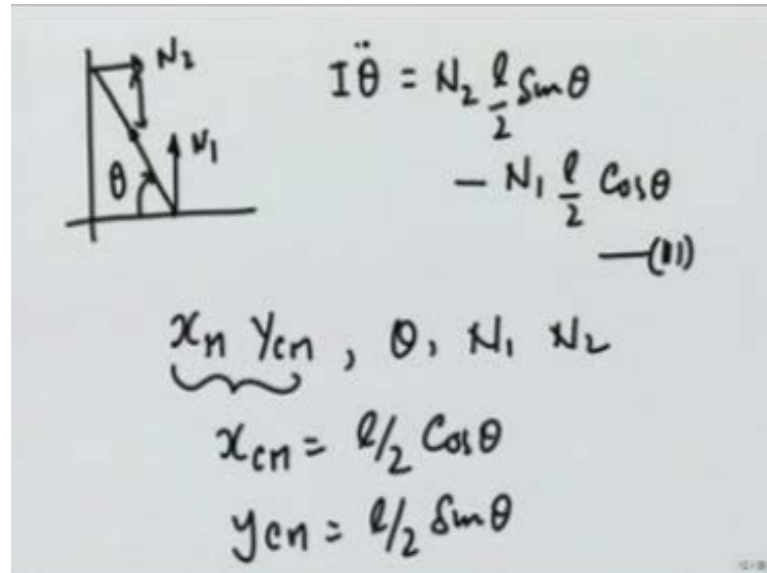 N₂
N₁
θ
Iθ̈ = N₂ l/2 Sinθ
− N₁ l/2 Cosθ
—(11)
xₙ y_cm , θ, N₁ N₂
x_cm = l/2 Cosθ
y_cm = l/2 Sinθ